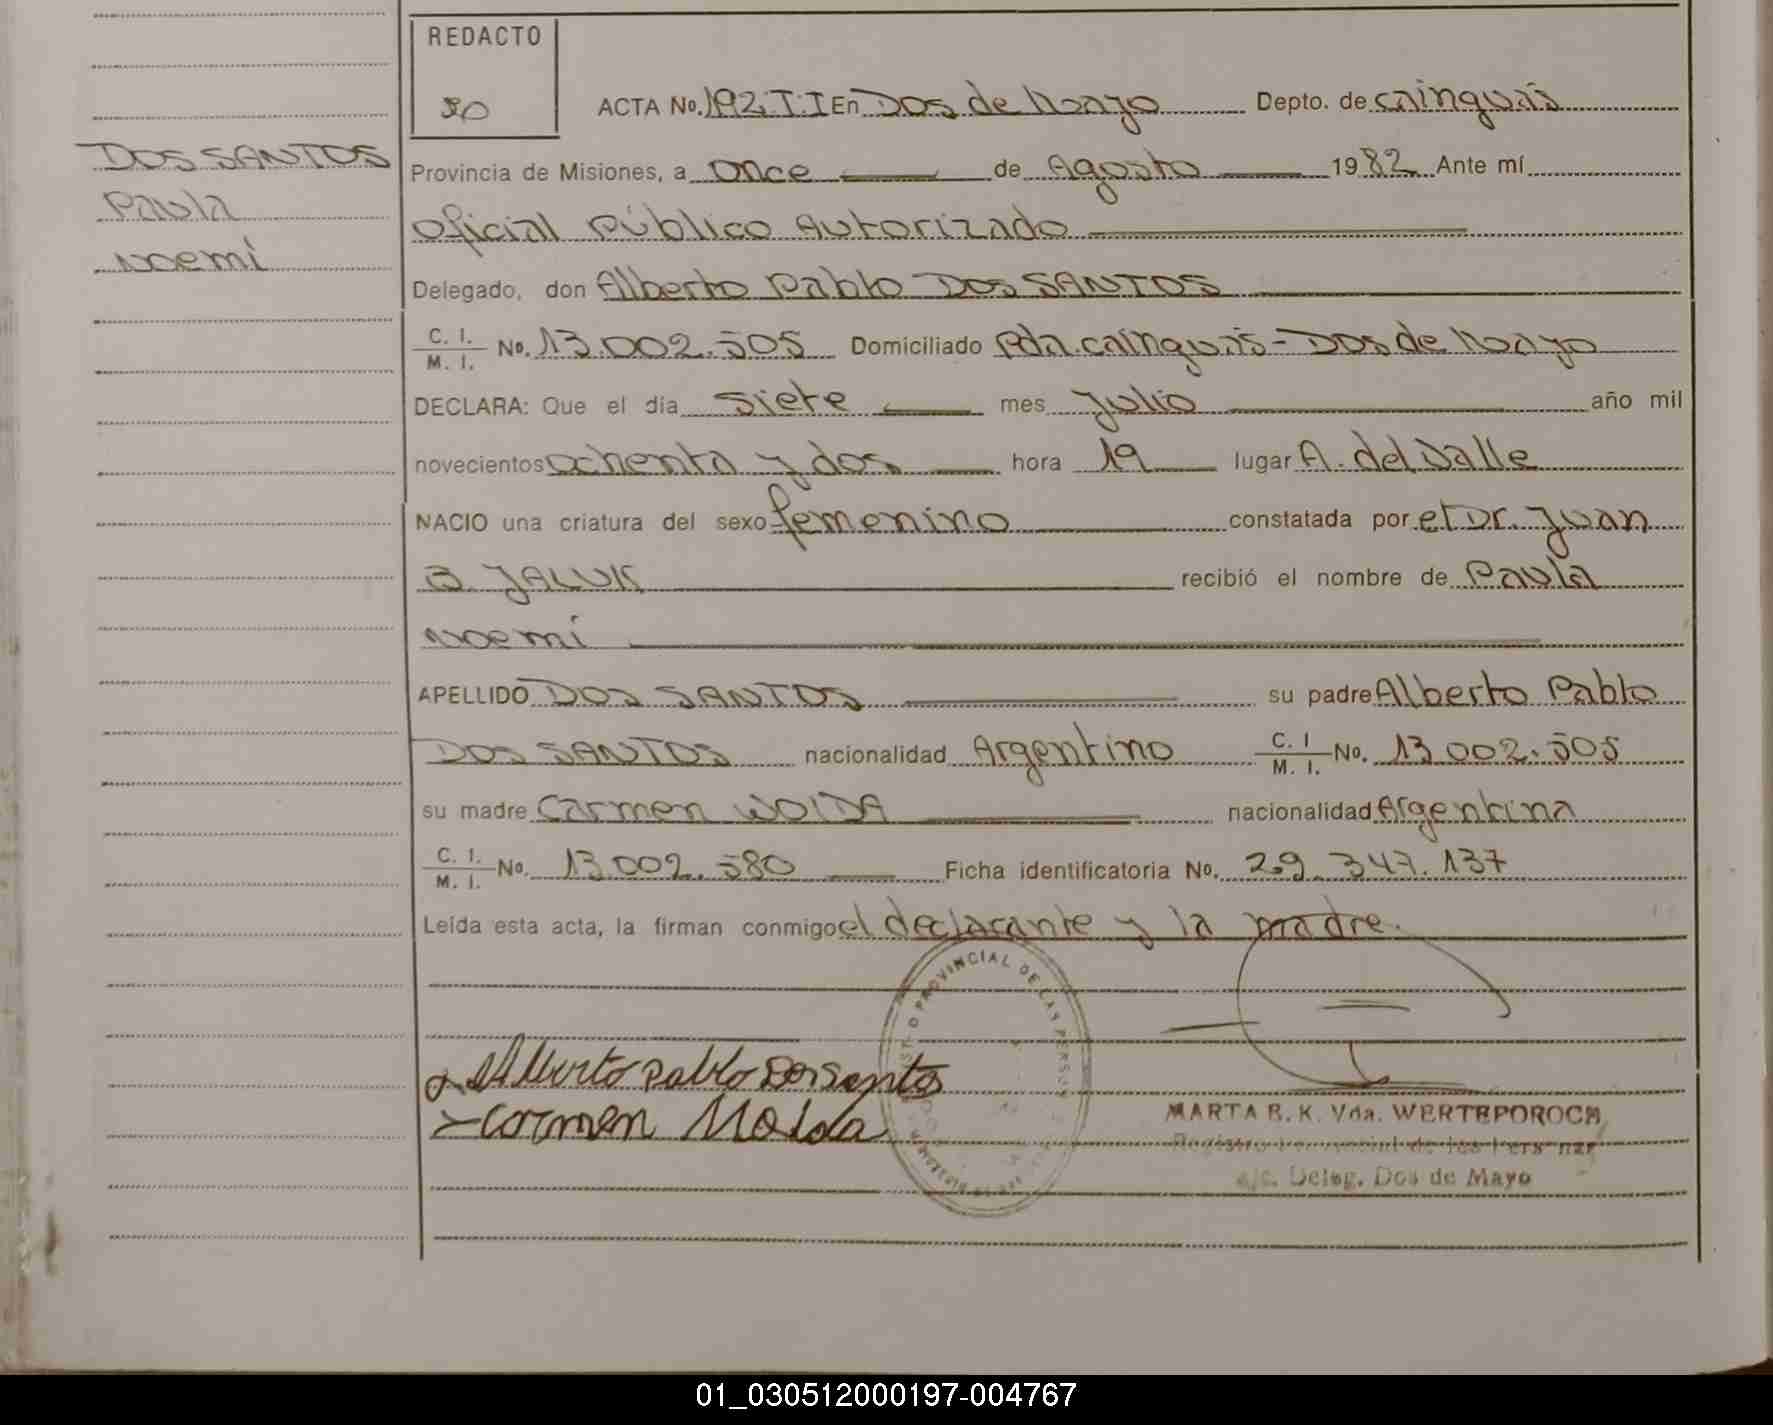 REDACTO
ACTA No. 192 TI En Dos de Mayo Depto. de Cainguás
DOS SANTOS
Paula
Noemí
Provincia de Misiones, a Once de Agosto 1982 Ante mí
Oficial Público Autorizado
Delegado, don Alberto Pablo DOS SANTOS
C. I.
M. I. No. 13.002.505 Domiciliado Pda. Cainguás - Dos de Mayo
DECLARA: Que el día siete mes Julio año mil
novecientos ochenta y dos hora 19 lugar A. del Valle
NACIO una criatura del sexo femenino constatada por el Dr. Juan
B. JALUK recibió el nombre de Paula
Noemí
APELLIDO DOS SANTOS su padre Alberto Pablo
DOS SANTOS nacionalidad Argentino C. I
M. I. No. 13.002.505
su madre Carmen WOIDA nacionalidad Argentina
C. I.
M. I. No. 13.002.580 Ficha identificatoria No. 29.347.137
Leída esta acta, la firman conmigo el declarante y la madre.
Alberto Pablo Dossantos
Carmen
PROVINCIAL DE LAS PERSON
MARTA B. K. Vda. WERTEPOROCH
Registro Provincial de las Personas
a/c. Deleg. Dos de Mayo
01_030512000197-004767